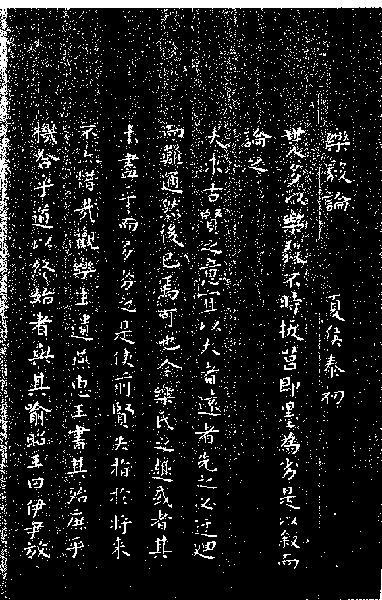 樂毅論 夏侯泰初
世人多以樂毅不時拔莒即墨為劣是以叙而
論之
夫求古賢之意宜以大者遠者先之必迂迴
而難通然後已焉可也今樂氏之趣或者其
未盡乎而多劣之是使前賢失指於將来
不亦惜哉觀樂生遺燕惠王書其殆庶乎
機合乎道以終始者與其喻昭王曰伊尹放